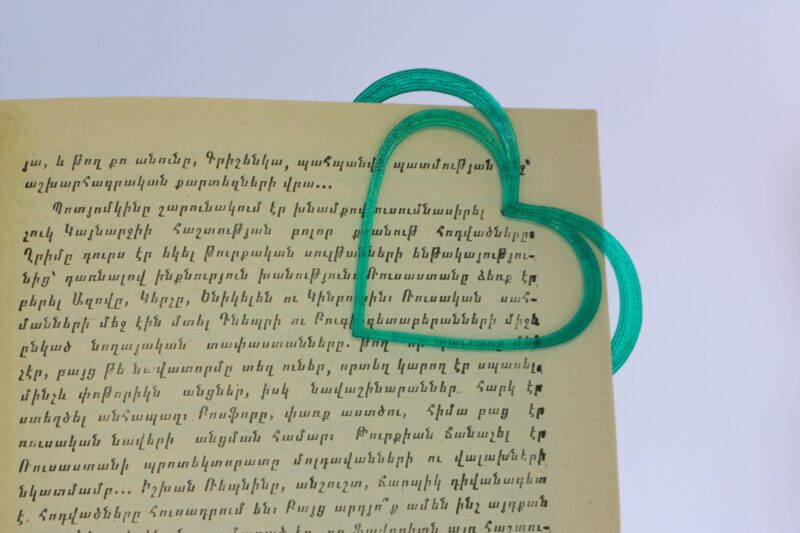 յա, և թող քո անունը, Գրիշենկա, պահպանվի պատմության մեջ՝
աշխարհագրական քարտեզների վրա...
Պոտյոմկինը շարունակում էր խնամքով ուսումնասիրել
չուկ Կայնարջիի հաշտության բոլոր քսանութ հոդվածները։
Ղրիմը դուրս էր եկել թուրքական սուլթանների ենթակայությու-
նից՝ դառնալով ինքնուրույն խանություն։ Ռուսաստանը ձեռք էր
բերել Ազովը, Կերչը, Ենիկելեն ու Կինբուրնը։ Ռուսական սահ-
մանների մեջ էին մտել Դնեպրի ու Բուգի գետաբերանների միջև
ընկած նողայական տափաստանները. թող որ
չէր, բայց թե նավատորմը տեղ ուներ, որտեղ կարող էր սպասել,
մինչև փոթորիկն անցներ, իսկ նավաշինարաններ հարկ էր
ստեղծել անհապաղ։ Բոսֆորը, փառք աստծու, հիմա բաց էր
ռուսական նավերի անցման համար։ Թուրքիան ճանաչել էր
Ռուսաստանի պրոտեկտորատը մոլդավանների ու վալախների
նկատմամբ... Իշխան Ռեպնինը, անշուշտ, ճարպիկ դիվանագետ
է. հոդվածները հուսադրում են։ Բայց արդյո՞ք ամեն ինչ այդքան